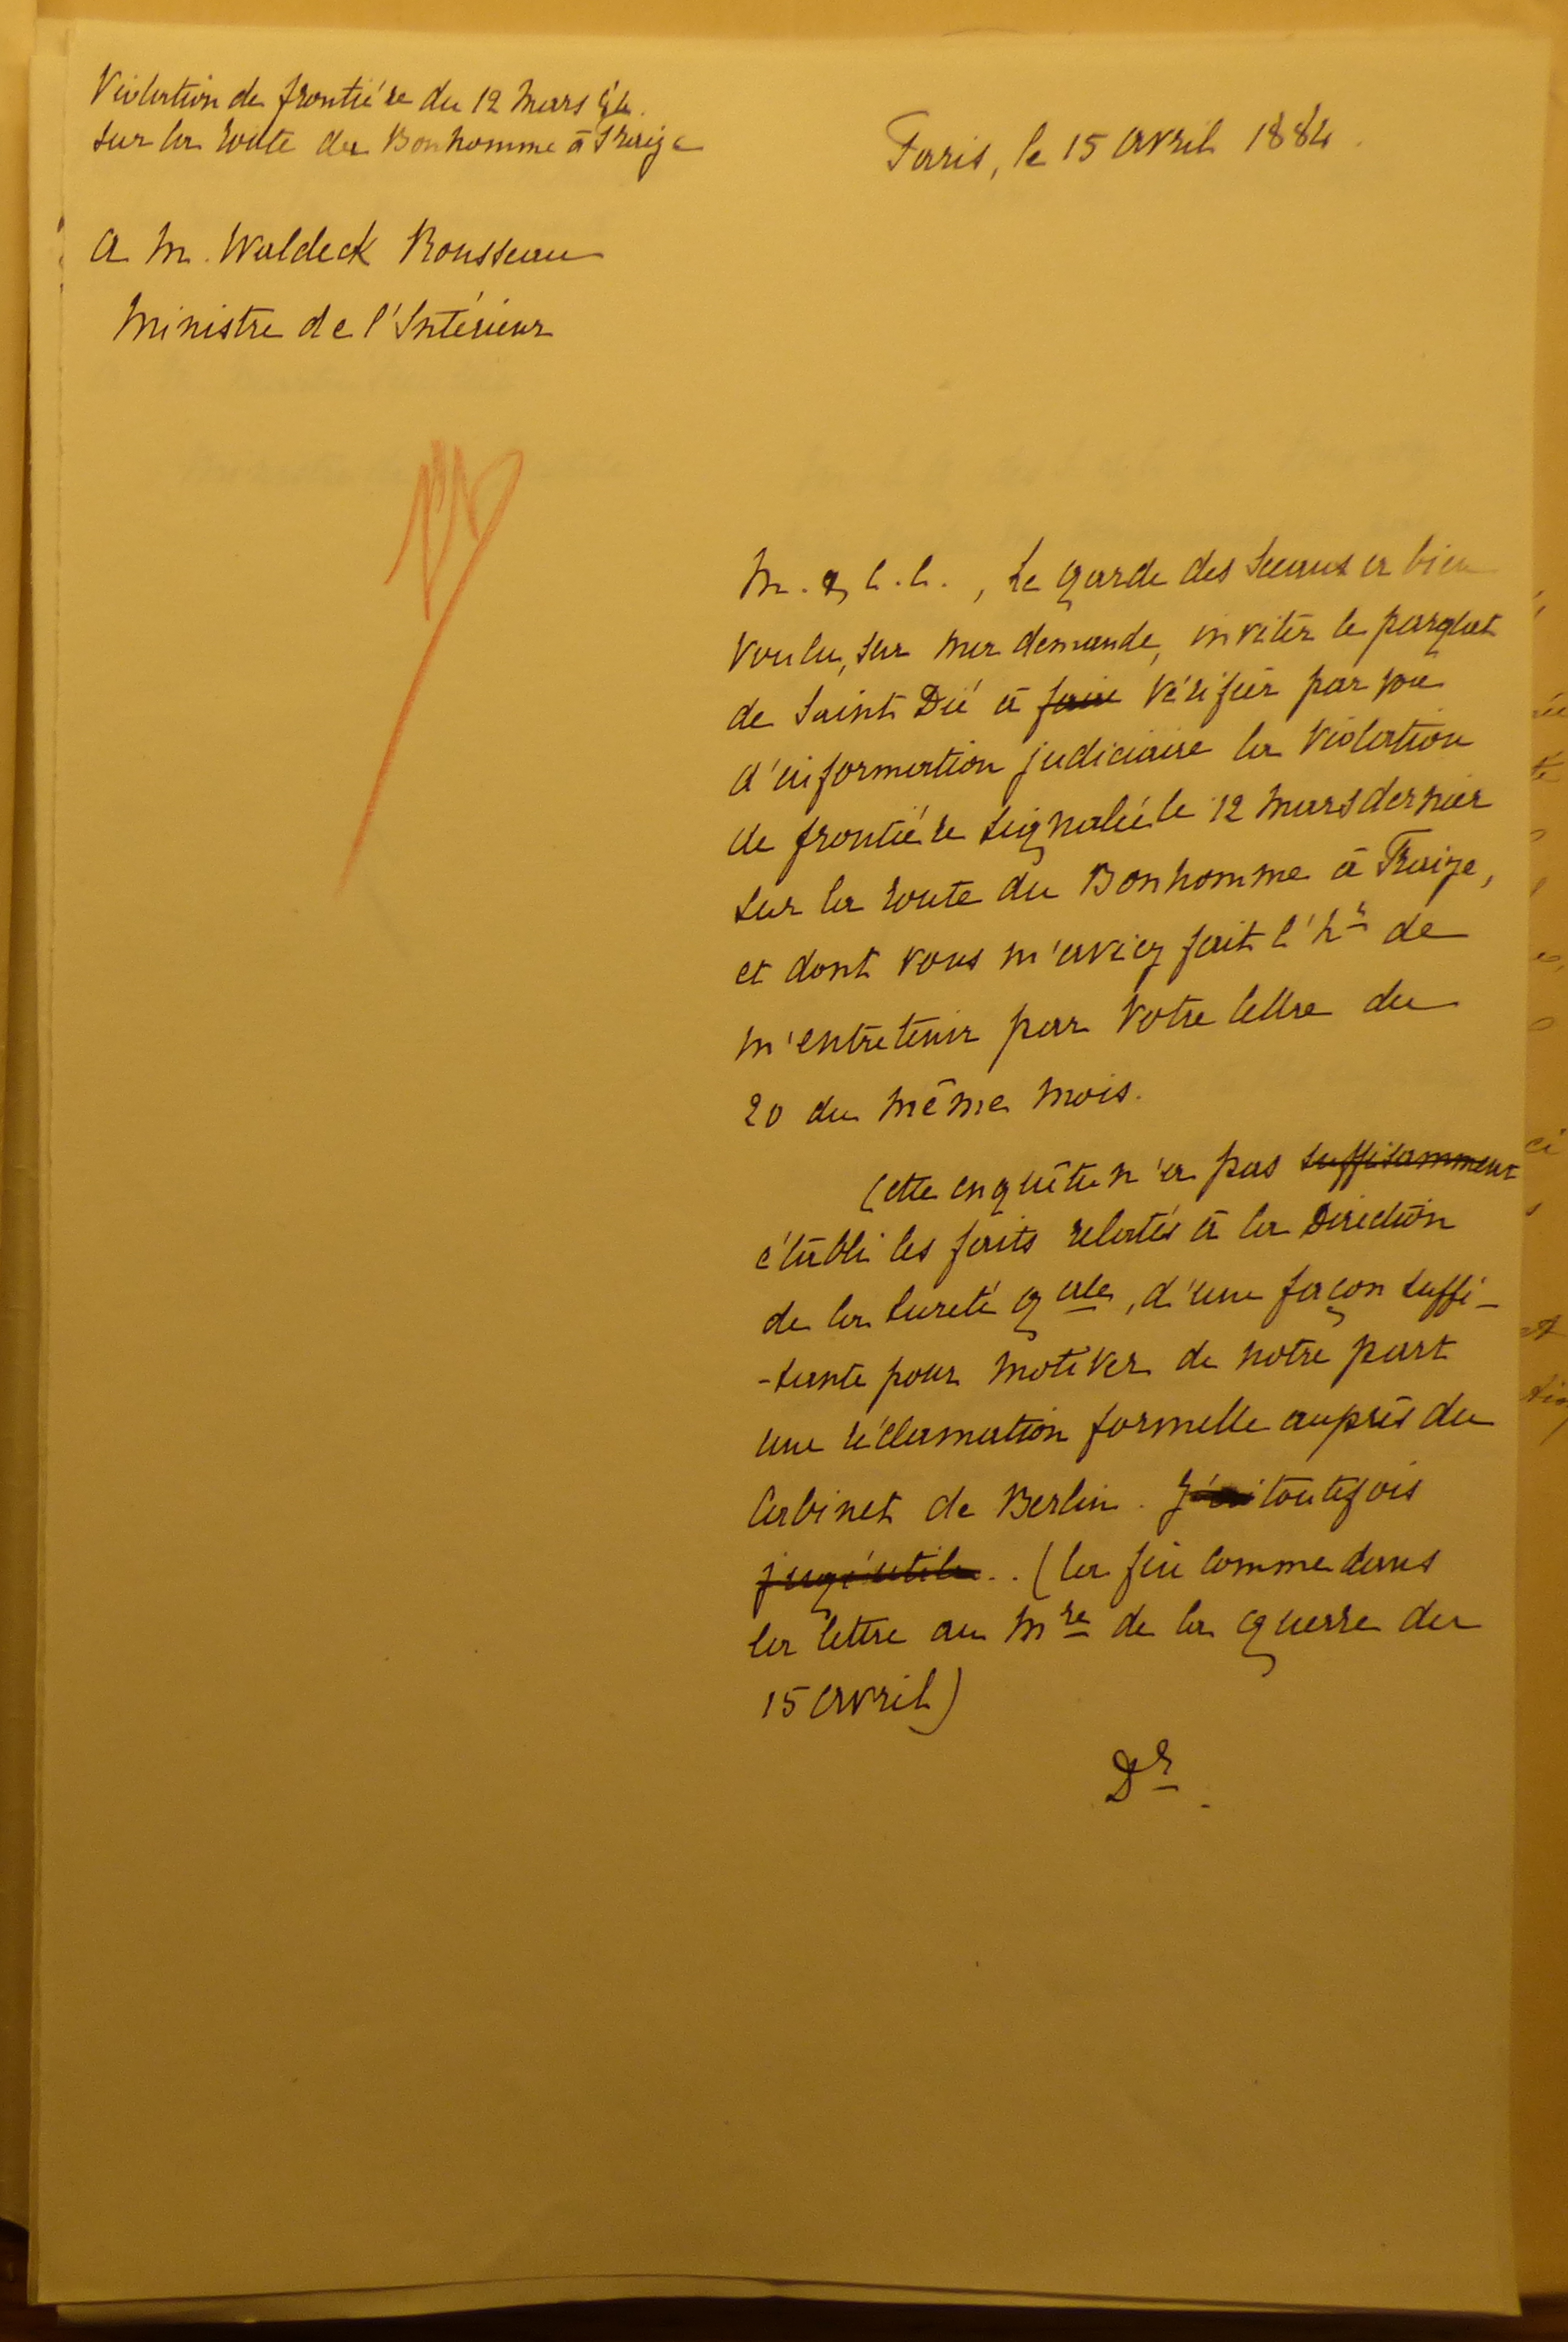 Violation de frontière du 12 Mars 84.
sur la route du Bonhomme à Fraize
Paris, le 15 avril 1884.
A M. Waldeck Rousseau
Ministre de l'Intérieur
M. & C. C., Le garde des Sceaux a bien
voulu, sur ma demande, inviter le parquet
de Saint Dié à faire vérifier par voie
d'information judiciaire la violation
de frontière signalée le 12 Mars dernier
sur la route du Bonhomme à Fraize,
et dont vous m'aviez fait l'hr de
m'entretenir par votre lettre du
20 du même mois.
Cette enquête n'a pas suffisamment
établi les faits relatés à la Direction
de la Sureté gale, d'une façon suffi-
-sante pour motiver de notre part
une réclamation formelle auprès du
Cabinet de Berlin. J'ai toutefois
jugé utile.. (la fin comme dans
la lettre au Mre de la guerre du
15 avril)
Dr.